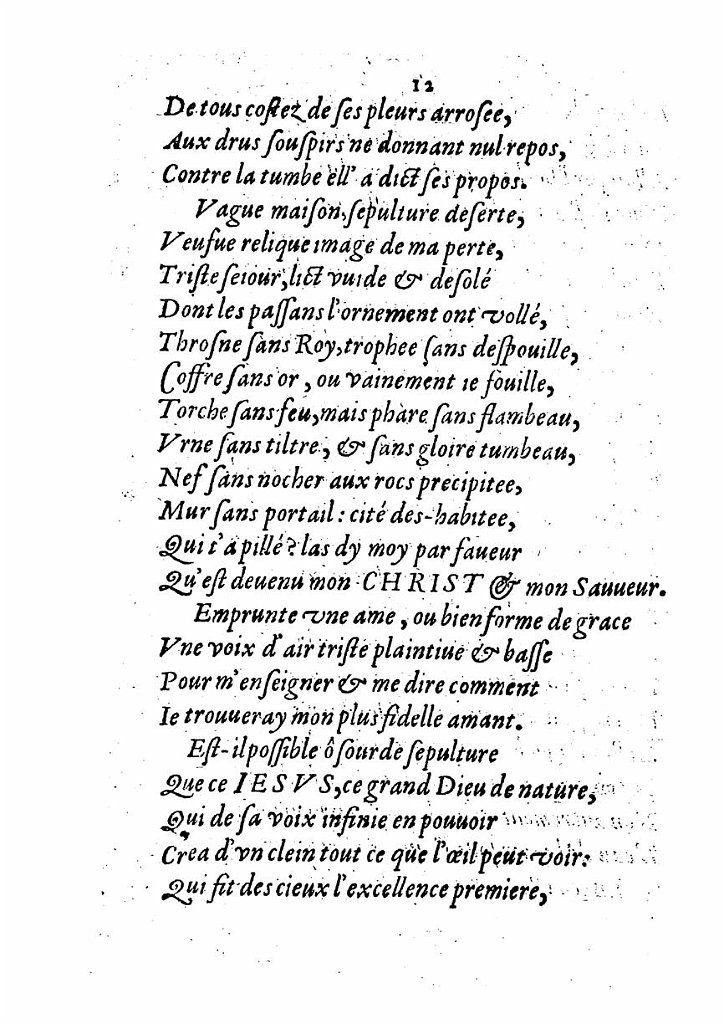 12
De tous coſtez de ſes pleurs arroſee,
Aux drus ſouſpirs ne donnant nul repos,
Contre la tumbe ell' a dict ſes propos.
Vague maiſon, ſepulture deſerte,
Veufue relique image de ma perte,
Triſte ſeiour, lict vuide & deſolé
Dont les paſſans l'ornement ont vollé,
Throſne ſans Roy, trophee ſans deſpouille,
Coffre ſans or, ou vainement ie fouille,
Torche ſans feu, mais phare ſans flambeau,
Vrne ſans tiltre, & ſans gloire tumbeau,
Nef ſans nocher aux rocs precipitee,
Mur ſans portail : cité des-habitee,
Qui t'a pillé ? las dy moy par faueur
Qu'eſt deuenu mon CHRIST & mon Sauueur.
Emprunte vne ame, ou bien forme de grace
Vne voix d'air triſte plaintiue & baſſe
Pour m'enſeigner & me dire comment
Ie trouueray mon plus fidelle amant.
Eſt-il poſſible ô ſourde ſepulture
Que ce IESVS, ce grand Dieu de nature,
Qui de ſa voix infinie en pouuoir
Crea d'vn clein tout ce que l'œil peut voir:
Qui fit des cieux l'excellence premiere,